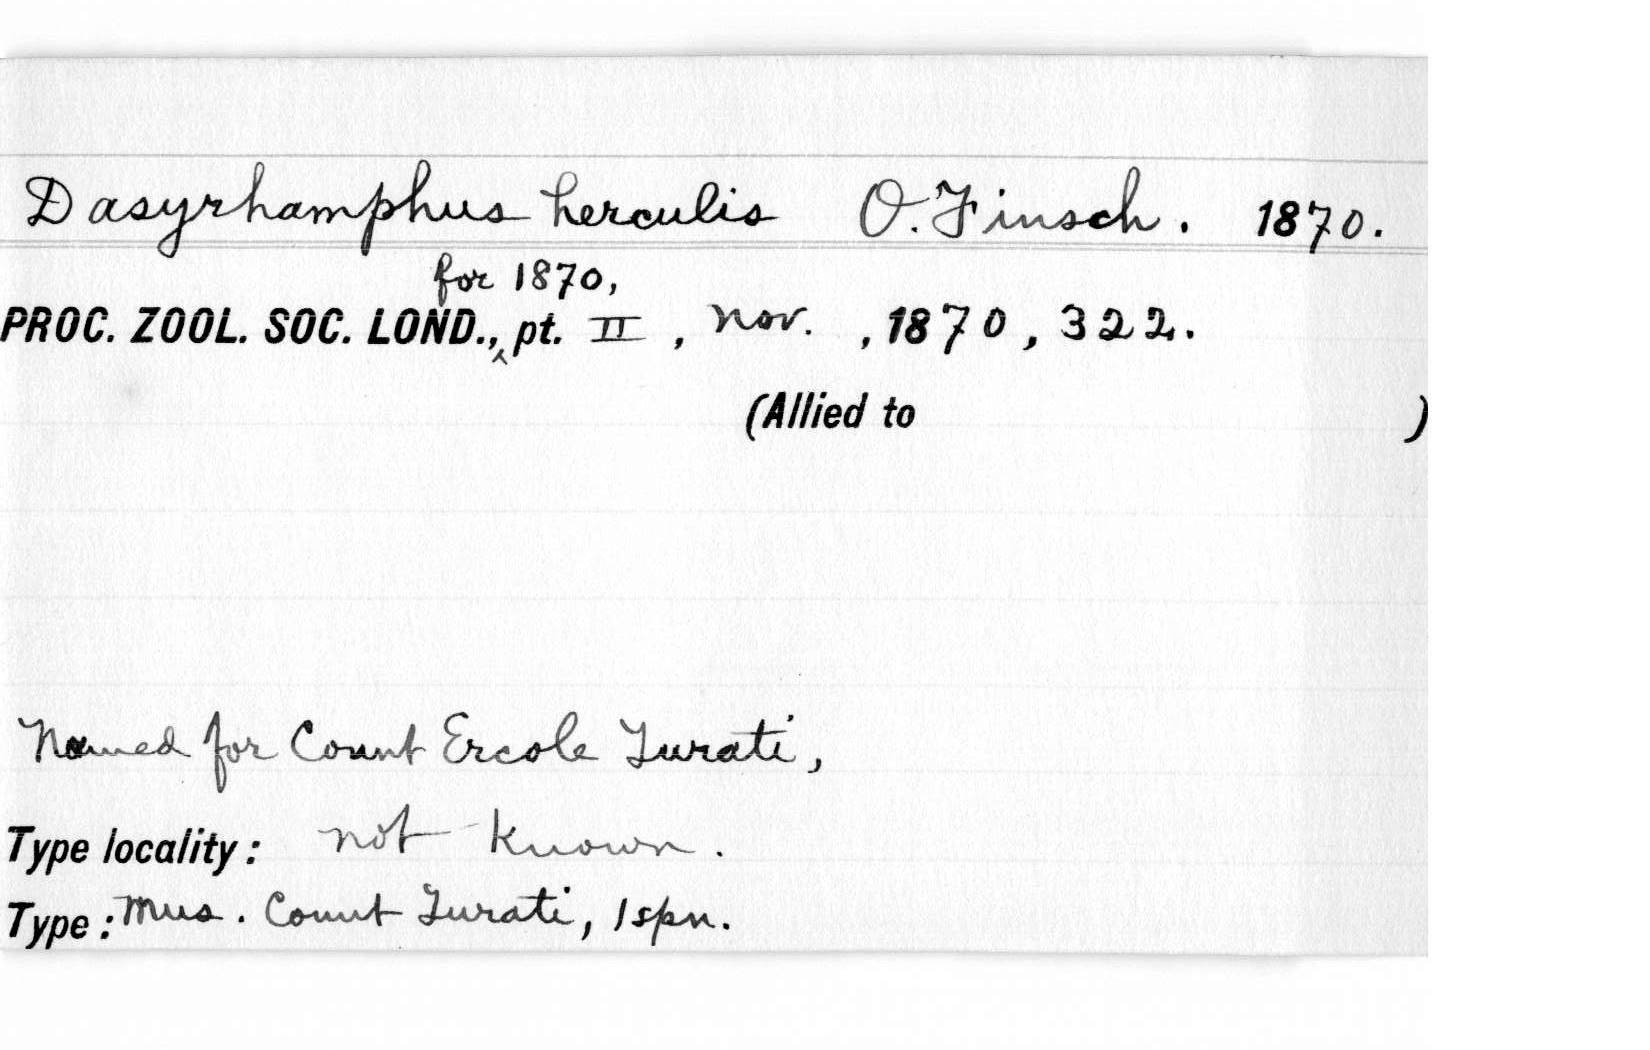 Dasyrhamphus herculis O. Finsch. 1870.
for 1870,
PROC. ZOOL. SOC. LOND., pt. II, Nov. , 1870, 322.
(Allied to )
Named for Count Ercole Turati,
Type locality: not known.
Type: Mus. Count Turati, 1 spn.